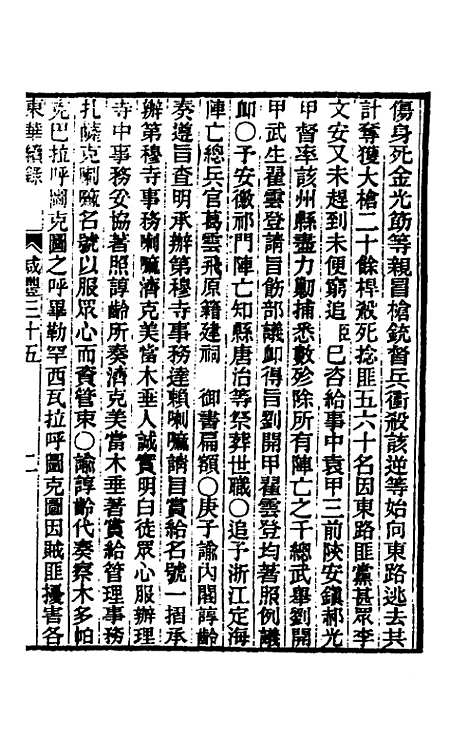 傷身死金光筯等親冒槍銃督兵衝殺該逆等始向東路逃去共
計奪獲大槍二十餘桿殺死捻匪五六十名因東路匪黨甚眾李
文安又未趕到未便窮追臣已咨給事中袁甲三前陜安鎮郝光
甲督率該州縣盡力勦捕悉數殄除所有陣亡之千總武舉劉開
甲武生翟雲登請旨飭部議卹得旨劉開甲翟雲登均著照例議
卹〇予安徽祁門陣亡知縣唐治等祭葬世職〇追予浙江定海
陣亡總兵官葛雲飛原籍建祠 御書扁額〇庚子諭內閣諄齡
奏遵旨查明承辦第穆寺事務達賴喇嘛請目賞給名號一摺承
辦第穆寺事務喇嘛濟克美當木垂人誠實明白徒眾心服辦理
寺中事務妥協著照諄齡所奏濟克美當木垂著賞給管理事務
扎薩克喇嘛名號以服眾心而資管束〇諭諄齡代奏察木多帕
克巴拉呼圖克圖之呼畢勒罕西瓦拉呼圖克圖因賊匪擾害各
東華續錄 咸豐三十五 二